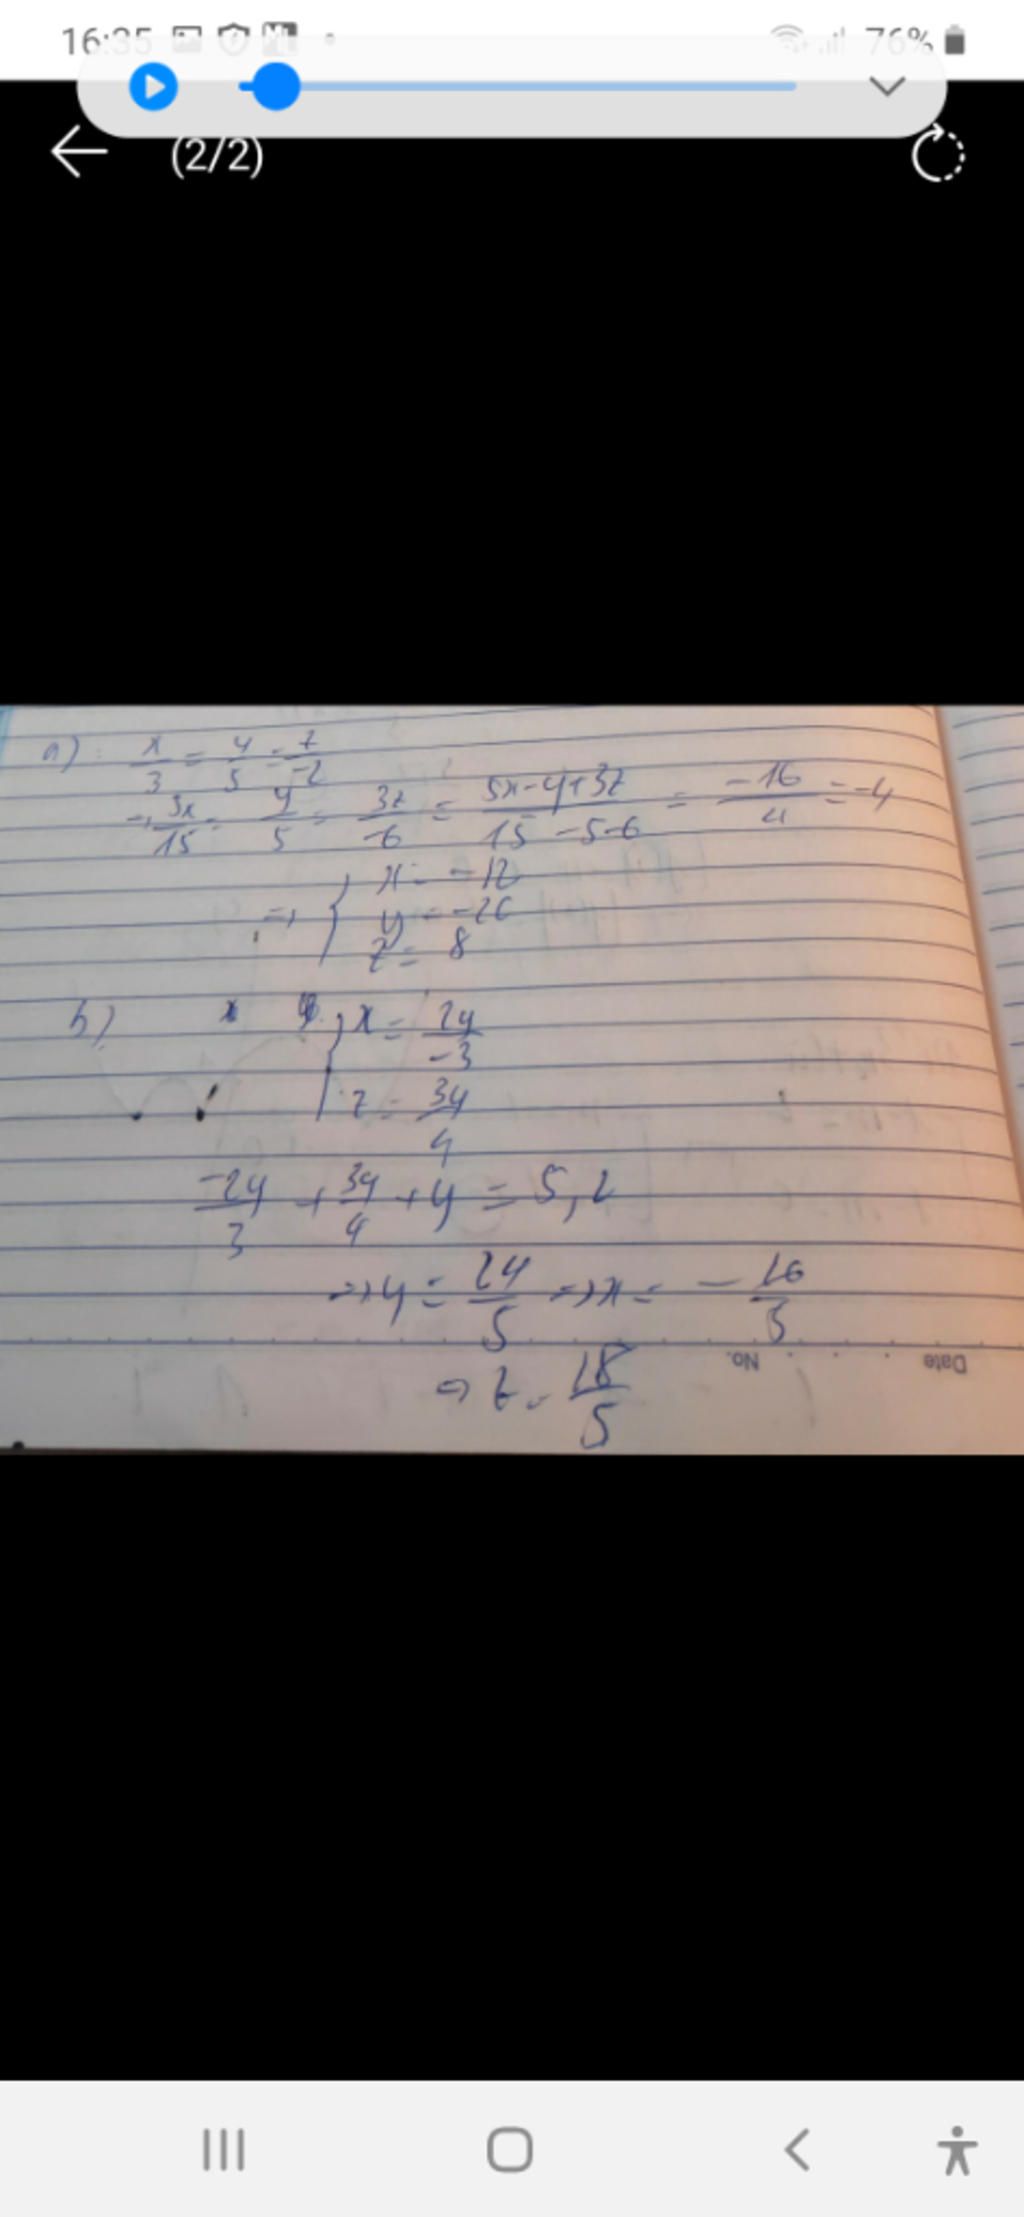 16:35 76%
(2/2)
a) : x/3 = y/5 = z/-2
→ 5x/15 = y/5 = 3z/-6 = 5x-y+3z/15-5-6 = -16/4 = -4
=> { x = -12
y = -20
z = 8
b) { x = 2y/-3
z = 3y/4
-2y/3 + 3y/4 + y = 5,2
=> y = 24/5 => x = - 16/5
No. Date
=> z = 18/5